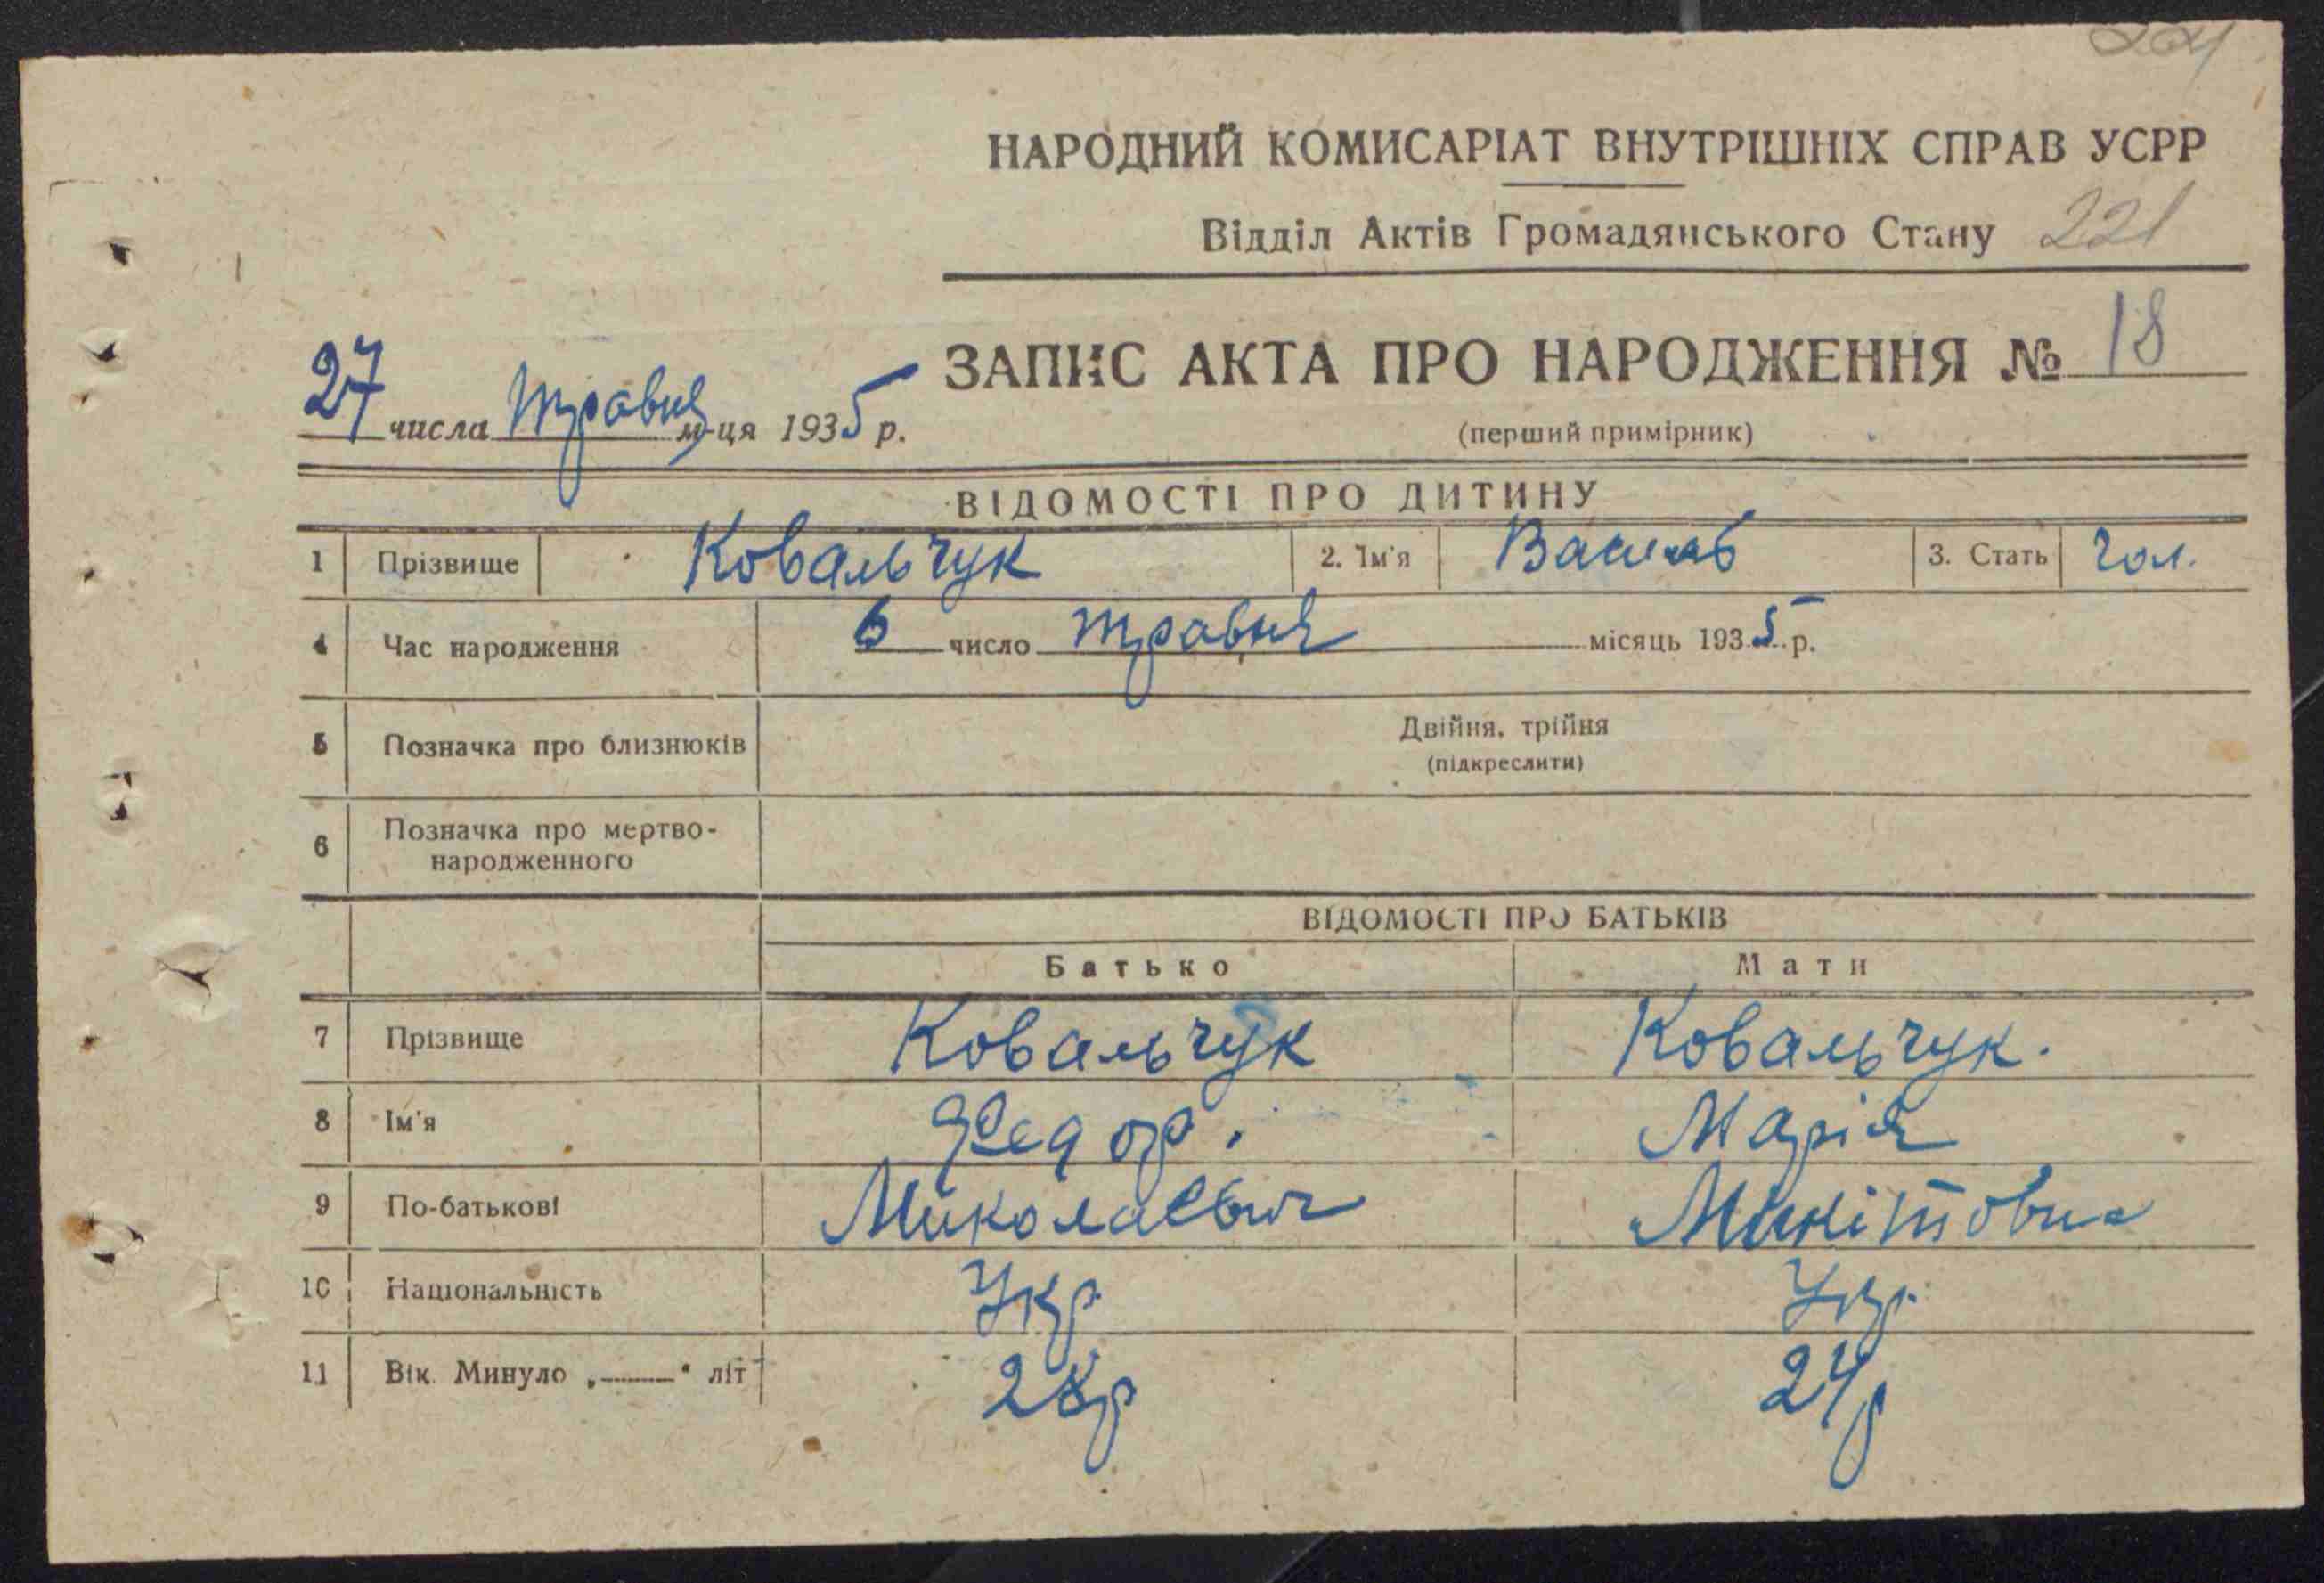 НАРОДНИЙ КОМИСАРІАТ ВНУТРІШНІХ СПРАВ УСРР
Відділ Актів Громадянського Стану 221
ЗАПИС АКТА ПРО НАРОДЖЕННЯ № 18
27 числа травня м-ця 1935 р.
(перший примірник)
ВІДОМОСТІ ПРО ДИТИНУ
1 Прізвище Ковальчук 2. Ім'я Василь 3. Стать Чол.
4 Час народження 6 число травня місяць 1935 р.
Двійня, трійня
5 Позначка про близнюків
(підкреслити)
6 Позначка про мертво-
народженного
ВІДОМОСТІ ПРО БАТЬКІВ
Батько Мати
7 Прізвище Ковальчук Ковальчук.
8 Ім'я Федор. Марія
9 По-батькові Миколаєвич Микітовна
10 Національність Укр. Укр.
11 Вік. Минуло „——“ літ 28р 24р